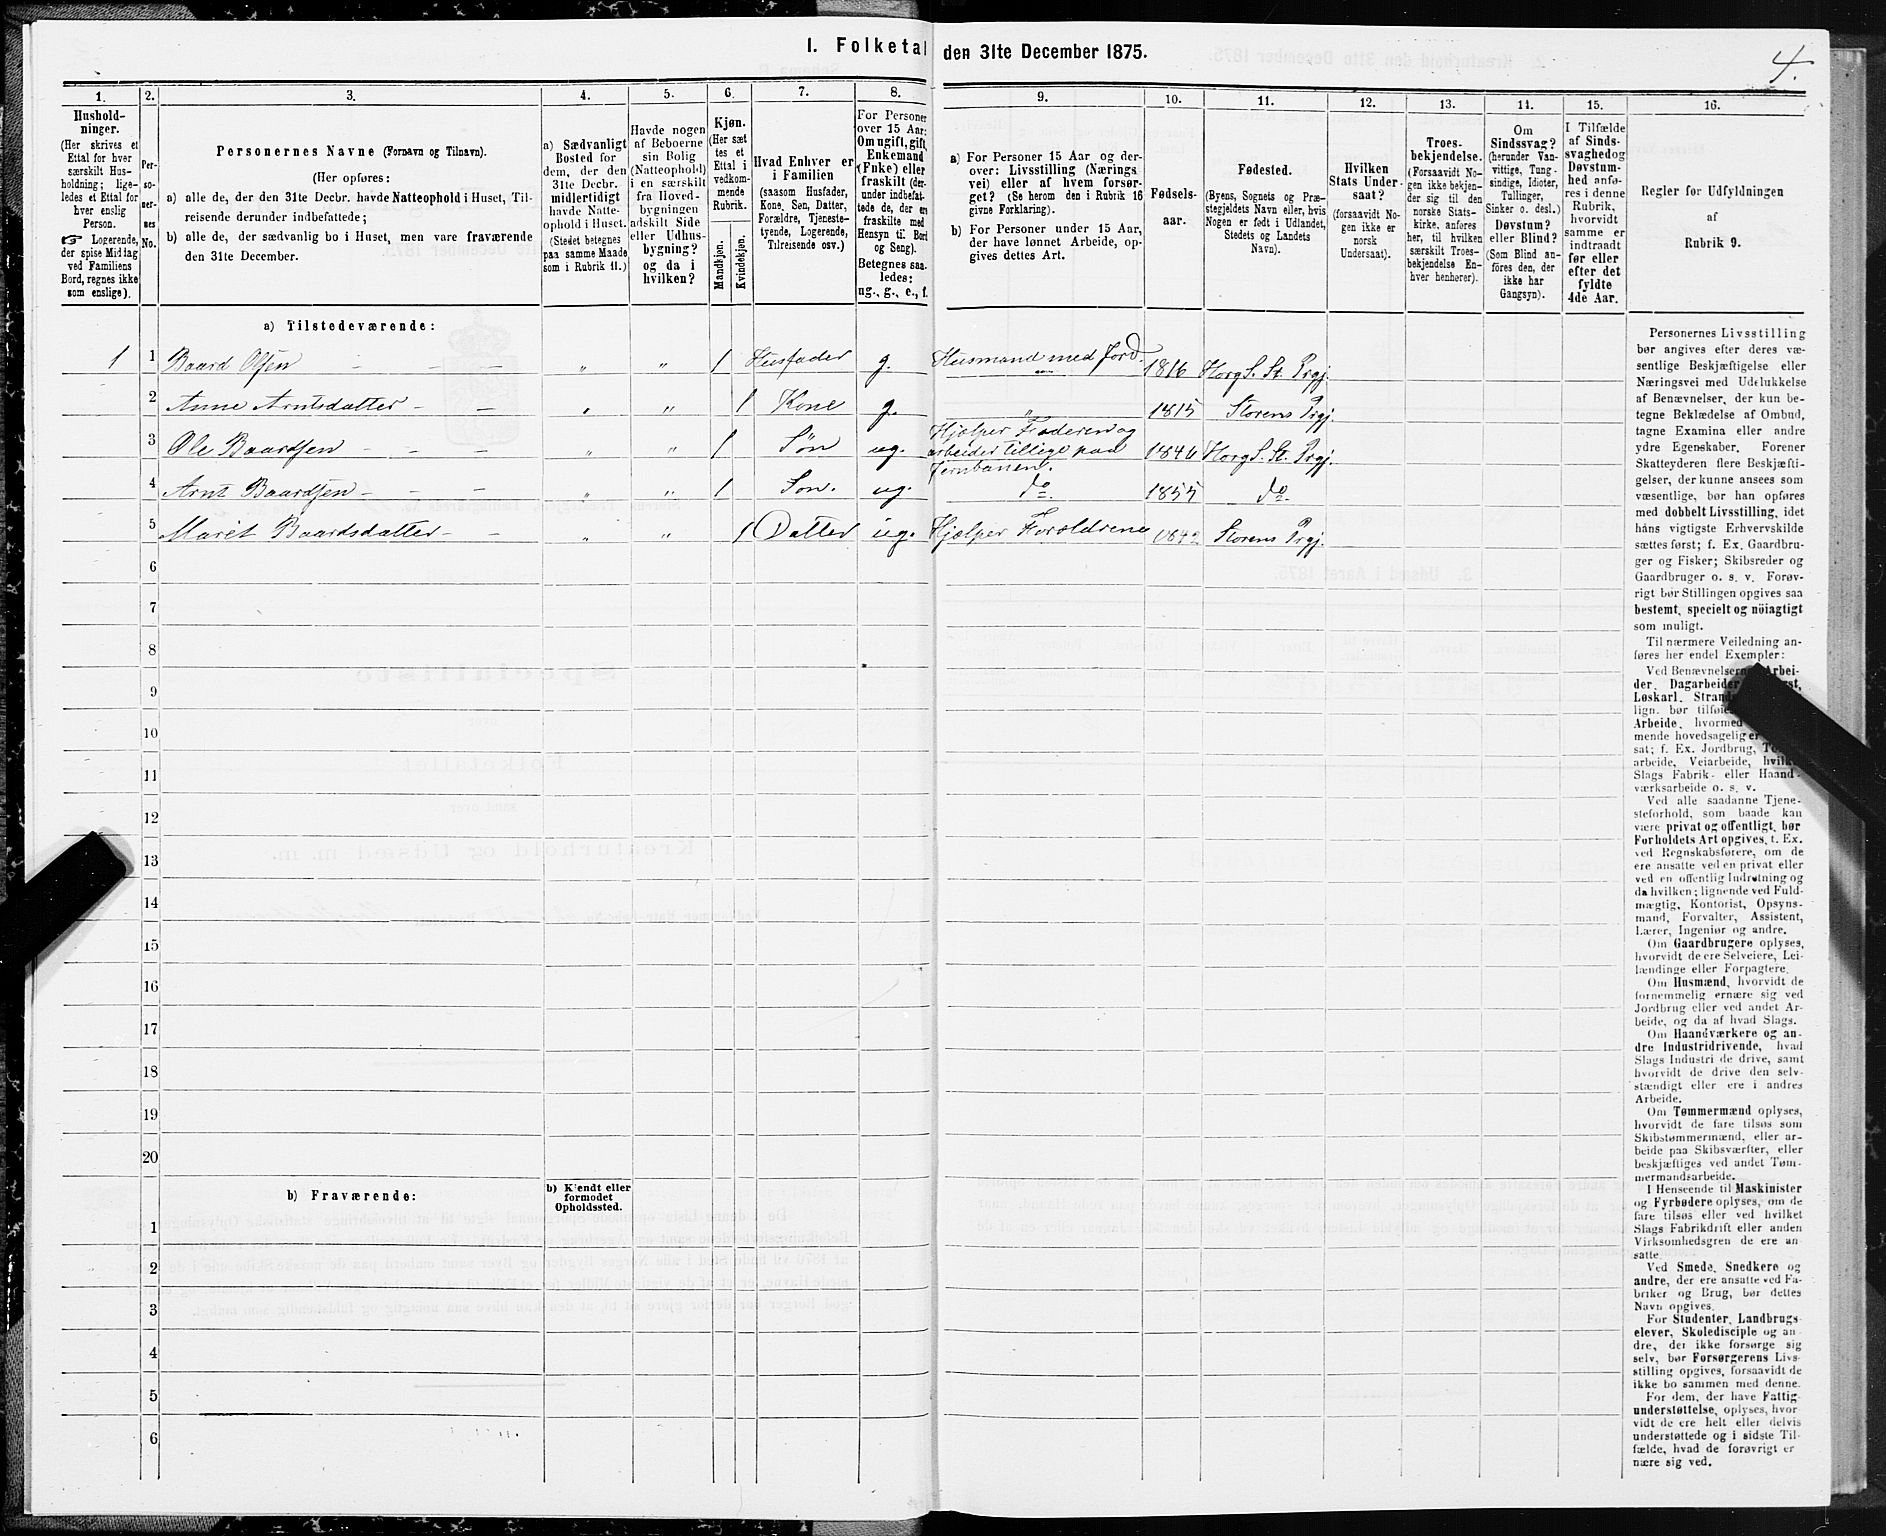 I. Folketal den 31te December 1875.
4.
1.
Hushold-
ninger.
(Her skrives et
Ettal for hver
særskilt Hus-
holdning; lige-
ledes et Ettal for
hver enslig
Person.
Logerende,
der spise Middag
ved Familiens
Bord, regnes ikke
som enslige).
2.
Per-
so-
ner-
nes
No.
3.
Personernes Navne (Fornavn og Tilnavn).
(Her opføres:
a) alle de, der den 31te Decbr. havde Natteophold i Huset, Til-
reisende derunder indbefattede;
b) alle de, der sædvanlig bo i Huset, men vare fraværende
den 31te December.
4.
a) Sædvanligt
Bosted for
dem, der den
31te Decbr.
midlertidigt
havde Natte-
ophold i Huset.
(Stedet betegnes
paa samme Maade
som i Rubrik 11.)
5.
Havde nogen
af Beboerne
sin Bolig
(Natteophold)
i en særskilt
fra Hoved-
bygningen
adskilt Side
eller Udhus-
bygning?
og da i
hvilken?
6.
Kjøn.
(Her sæt
tes et
Ettal i
vedkom-
mende
Rubrik.
Mandkjøn.
Kvindekjøn.
7.
Hvad Enhver er
i Familien
(saasom Husfader,
Kone, Søn, Datter,
Forældre, Tjeneste-
tyende, Logerende,
Tilreisende osv.)
8.
For Personer
over 15 Aar:
Om ugift, gift,
Enkemand
(Enke) eller
fraskilt (der-
under indbefat-
tede de, der er
fraskilte med
Hensyn til Bord
og Seng).
Betegnes saa-
ledes:
ug., g., e., f.
9.
a) For Personer 15 Aar og der-
over: Livsstilling (Nærings
vei) eller af hvem forsør-
get? (Se herom den i Rubrik 16
givne Forklaring).
b) For Personer under 15 Aar,
der have lønnet Arbeide, op-
gives dettes Art.
10.
Fødsels-
aar.
11.
Fødested.
(Byens, Sognets og Præ-
stegjeldets Navn eller, hvis
Nogen er født i Udlandet,
Stedets og Landets
Navn).
12.
Hvilken
Stats Under-
saat?
(forsaavidt No-
gen ikke er
norsk
Undersaat).
13.
Troes-
bekjendelse.
(Forsaavidt No-
gen ikke bekjen-
der sig til den
norske Stats-
kirke, anføres
her, til hvilken
særskilt Troes-
bekjendelse En-
hver henhører).
14.
Om
Sindssvag?
(herunder Van-
vittige, Tung-
sindige, Idioter,
Tullinger,
Sinker o. desl.)
Døvstum?
eller Blind?
(Som Blind an-
føres den, der
ikke har
Gangsyn).
15.
I Tilfælde
af Sinds-
svaghed og
Døvstum-
hed anfø-
res i denne
Rubrik,
hvorvidt
samme er
indtraadt
før eller
efter det
fyldte
4de Aar.
16.
Regler for Udfyldningen
af
Rubrik 9.
a) Tilstedeværende:
1 1 Baard Olsen - - - „ „ 1 Husfader g. Husmand med Jord. 1816 Horg S. St. Prgj.
2 Anne Arntsdatter - - „ „ 1 Kone g. „ 1815 Storens Prgj.
3 Ole Baardsen - - - „ „ 1 Søn ug. Hjælper Faderen og
arbeider tillige paa
Jernbanen. 1846 Horg S. St. Prgj.
4 Arnt Baardsen - - - „ „ 1 Søn. ug. do. 1855 do.
5 Marit Baardsdatter - - „ „ 1 Datter ug. Hjælper Forældrene 1842 Storens Prgj.
6
7
8
9
10
11
12
13
14
15
16
17
18
19
20
b) Fraværende:
b) Kjendt eller
formodet
Opholdssted.
1
2
3
4
5
6
Personernes Livsstilling
bør angives efter deres væ-
sentlige Beskjæftigelse eller
Næringsvei med Udelukkelse
af Benævnelser, der kun be-
tegne Beklædelse af Ombud,
tagne Examina eller andre
ydre Egenskaber. Forener
Skatteyderen flere Beskjæfti-
gelser, der kunne ansees som
væsentlige, bør han opføres
med dobbelt Livsstilling, idet
hans vigtigste Erhvervskilde
sættes først; f. Ex. Gaardbru-
ger og Fisker; Skibsreder og
Gaardbruger o. s. v. Forøv-
rigt bør Stillingen opgives saa
bestemt, specielt og nöiagtigt
som muligt.
Til nærmere Veiledning an-
føres her endel Exempler:
Ved Benævnelserne Arbei-
der, Dagarbeider
Løskarl,
lign. bør tilføies
Arbeide, hvormed
mende hovedsagelig er
sat; f. Ex. Jordbrug,
arbeide, Veiarbeide, hvilket
Slags Fabrik- eller Haand-
værksarbeide o. s. v.
Ved alle saadanne Tjene-
steforhold, som baade kan
være privat og offentligt, bør
Forholdets Art opgives, t. Ex.
ved Regnskabsførere, om de
ere ansatte ved en privat eller
ved en offentlig Indretning og
da hvilken; lignende ved Fuld-
mægtig, Kontorist, Opsyns-
mand, Forvalter, Assistent,
Lærer, Ingeniør og andre.
Om Gaardbrugere oplyses,
hvorvidt de ere Selveiere, Lei-
lændinge eller Forpagtere.
Om Husmænd, hvorvidt de
fornemmelig ernære sig ved
Jordbrug eller ved andet Ar-
beide, og da af hvad Slags.
Om Haandværkere og an-
dre Industridrivende, hvad
Slags Industri de drive, samt
hvorvidt de drive den selv-
stændigt eller ere i andres
Arbeide.
Om Tømmermænd oplyses,
hvorvidt de fare tilsøs som
Skibstømmermænd, eller ar-
beide paa Skibsværfter, eller
beskjæftiges ved andet Tøm-
mermandsarbeide.
I Henseende til Maskinister
og Fyrbødere oplyses, om de
fare tilsøs eller ved hvilket
Slags Fabrikdrift eller anden
Virksomhedsgren de ere an-
satte.
Ved Smede, Snedkere og
andre, der ere ansatte ved Fa-
briker og Brug, bør dettes
Navn opgives.
For Studenter, Landbrugs-
elever, Skoledisciple og an-
dre, der ikke forsørge sig
selv, bør Forsørgerens Livs-
stilling opgives, forsaavidt de
ikke bo sammen med denne.
For dem, der have Fattig-
understøttelse, oplyses, hvor
vidt de ere helt eller delvis
understøttede og i sidste Til-
fælde, hvad de forøvrigt er
nære sig ved.